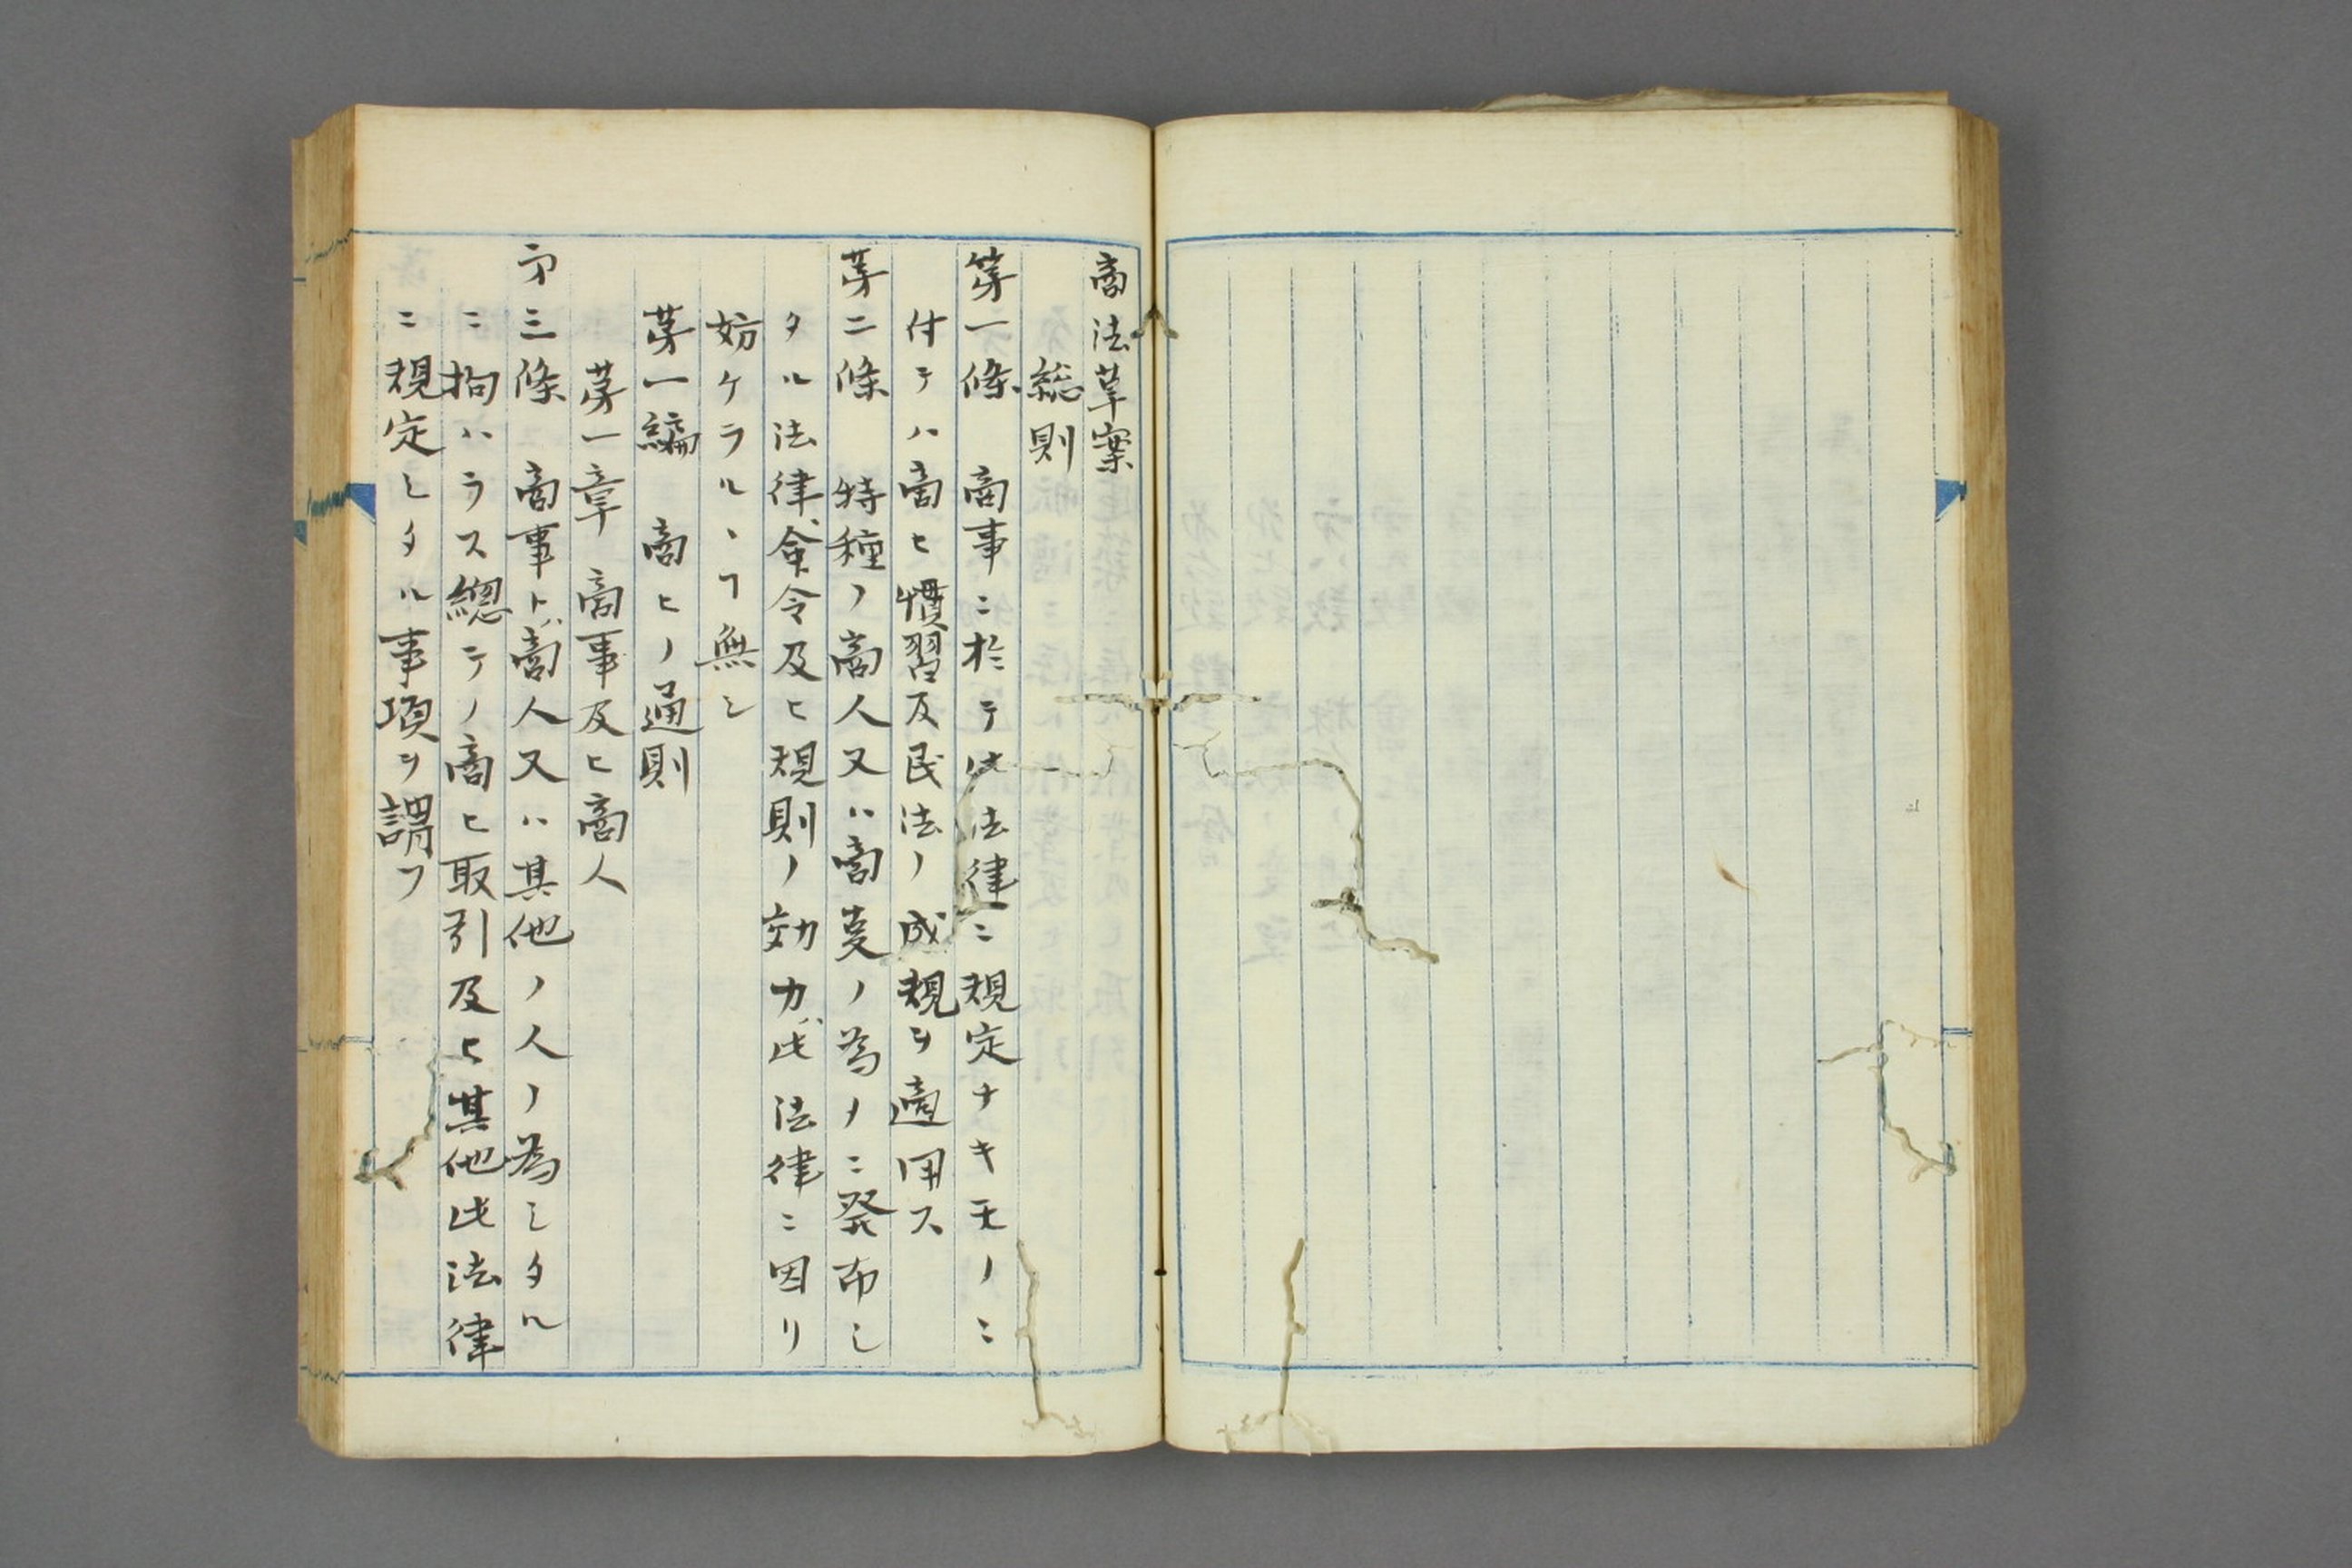 商法草案
総則
第一條　商事ニ於テ此法律ニ規定ナキモノニ
付テハ商ヒ慣習及民法ノ成規ヲ適用ス
第二條　特種ノ商人又ハ商事ノ為メニ発布シ
タル法律命令及ヒ規則ノ効力ハ此法律ニ因リ
妨ケラルヽヿ無シ
第一編　商ヒノ通則
第一章　商事及ヒ商人
第三條　商事トハ商人又ハ其他ノ人ノ為シタル
ニ拘ハラス總テノ商ヒ取引及ヒ其他此法律
ニ規定シタル事項ヲ謂フ